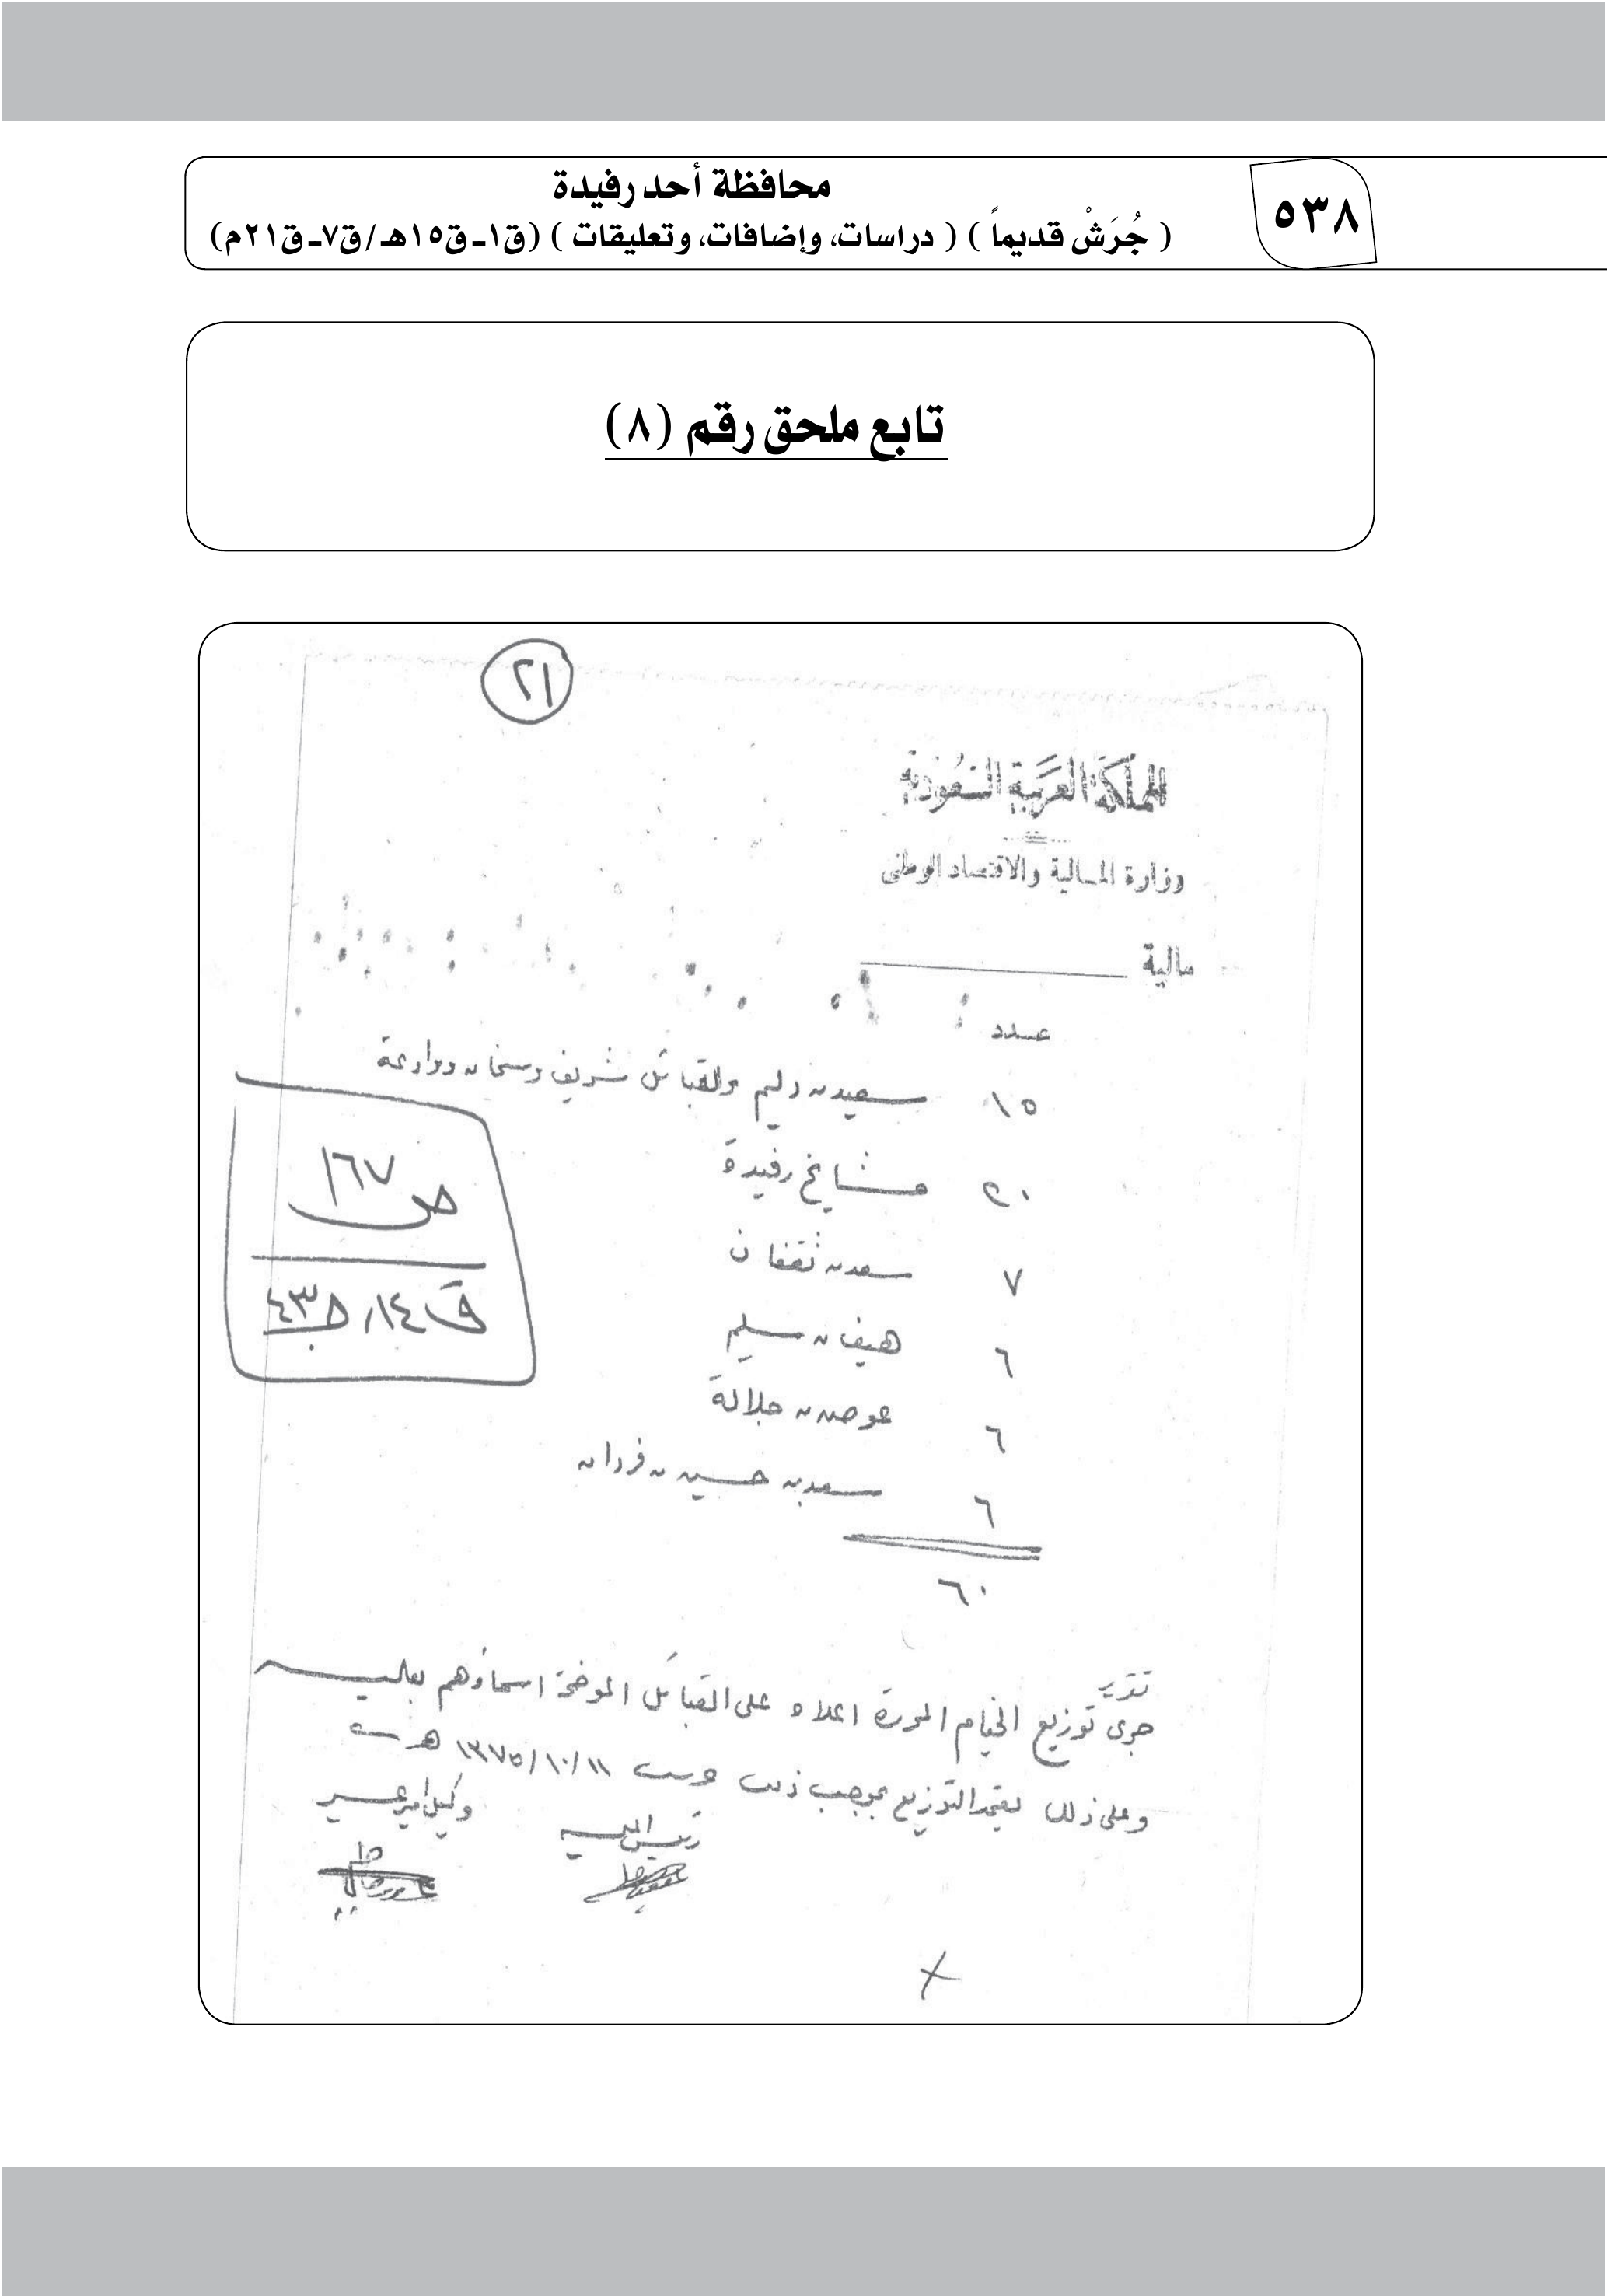 ٥٣٨
محافظة أحد رفيدة
( جُرَشْ قديماً ) ( دراسات، وإضافات، وتعليقات ) (ق١ـ ق١٥هـ / ق٧ـ ق٢١م)
تابع ملحق رقم (٨)
٢١
المملكة العربية السعودية
وزارة المالية والاقتصاد الوطنى
مالية
عدد
١٥ سعيد بن دليم والقبائل شريف وسنحان ووادعة
٢٠ مشايخ رفيدة
٧ سعد بن ثقفان
٦ هيف بن سليم
٦ عوض بن جلالة
٦ سعد بن حسين بن فردان
٦٠
ص ١٦٧
ق ١٤، ج ٤٣
جرى توزيع الخيام اعلاه على القبائل الموضحة اسماؤهم بعاليه
وعلى ذلك التوزيع بموجب ذلك ١٣٧٥/١٠/١١ هـ
رئيس وكيل امير عسير